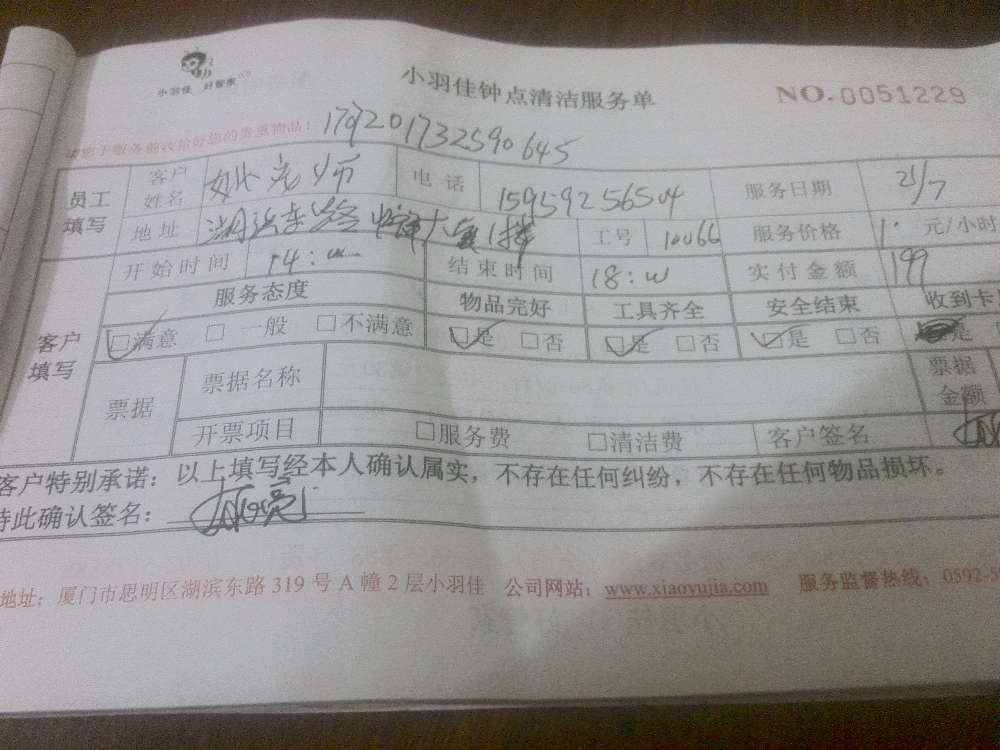 小羽佳 好管家
小羽佳钟点清洁服务单
NO.0051229
请您于服务前收拾好您的贵重物品！ 179201732590645
员工填写 客户姓名 姚先师 电话 15959256504 服务日期 21/7
地址 湖滨东路 大厦1楼 工号 10066 服务价格 1. 元/小时
开始时间 14:00 结束时间 18:00 实付金额 199
客户填写 服务态度 物品完好 工具齐全 安全结束 收到卡
□满意 □一般 □不满意 □是 □否 □是 □否 □是 □否 是
票据 票据名称 票据金额
开票项目 □服务费 □清洁费 客户签名
客户特别承诺：以上填写经本人确认属实，不存在任何纠纷，不存在任何物品损坏。
特此确认签名：
地址：厦门市思明区湖滨东路319号A幢2层小羽佳 公司网站：www.xiaoyujia.com 服务监督热线：0592-5